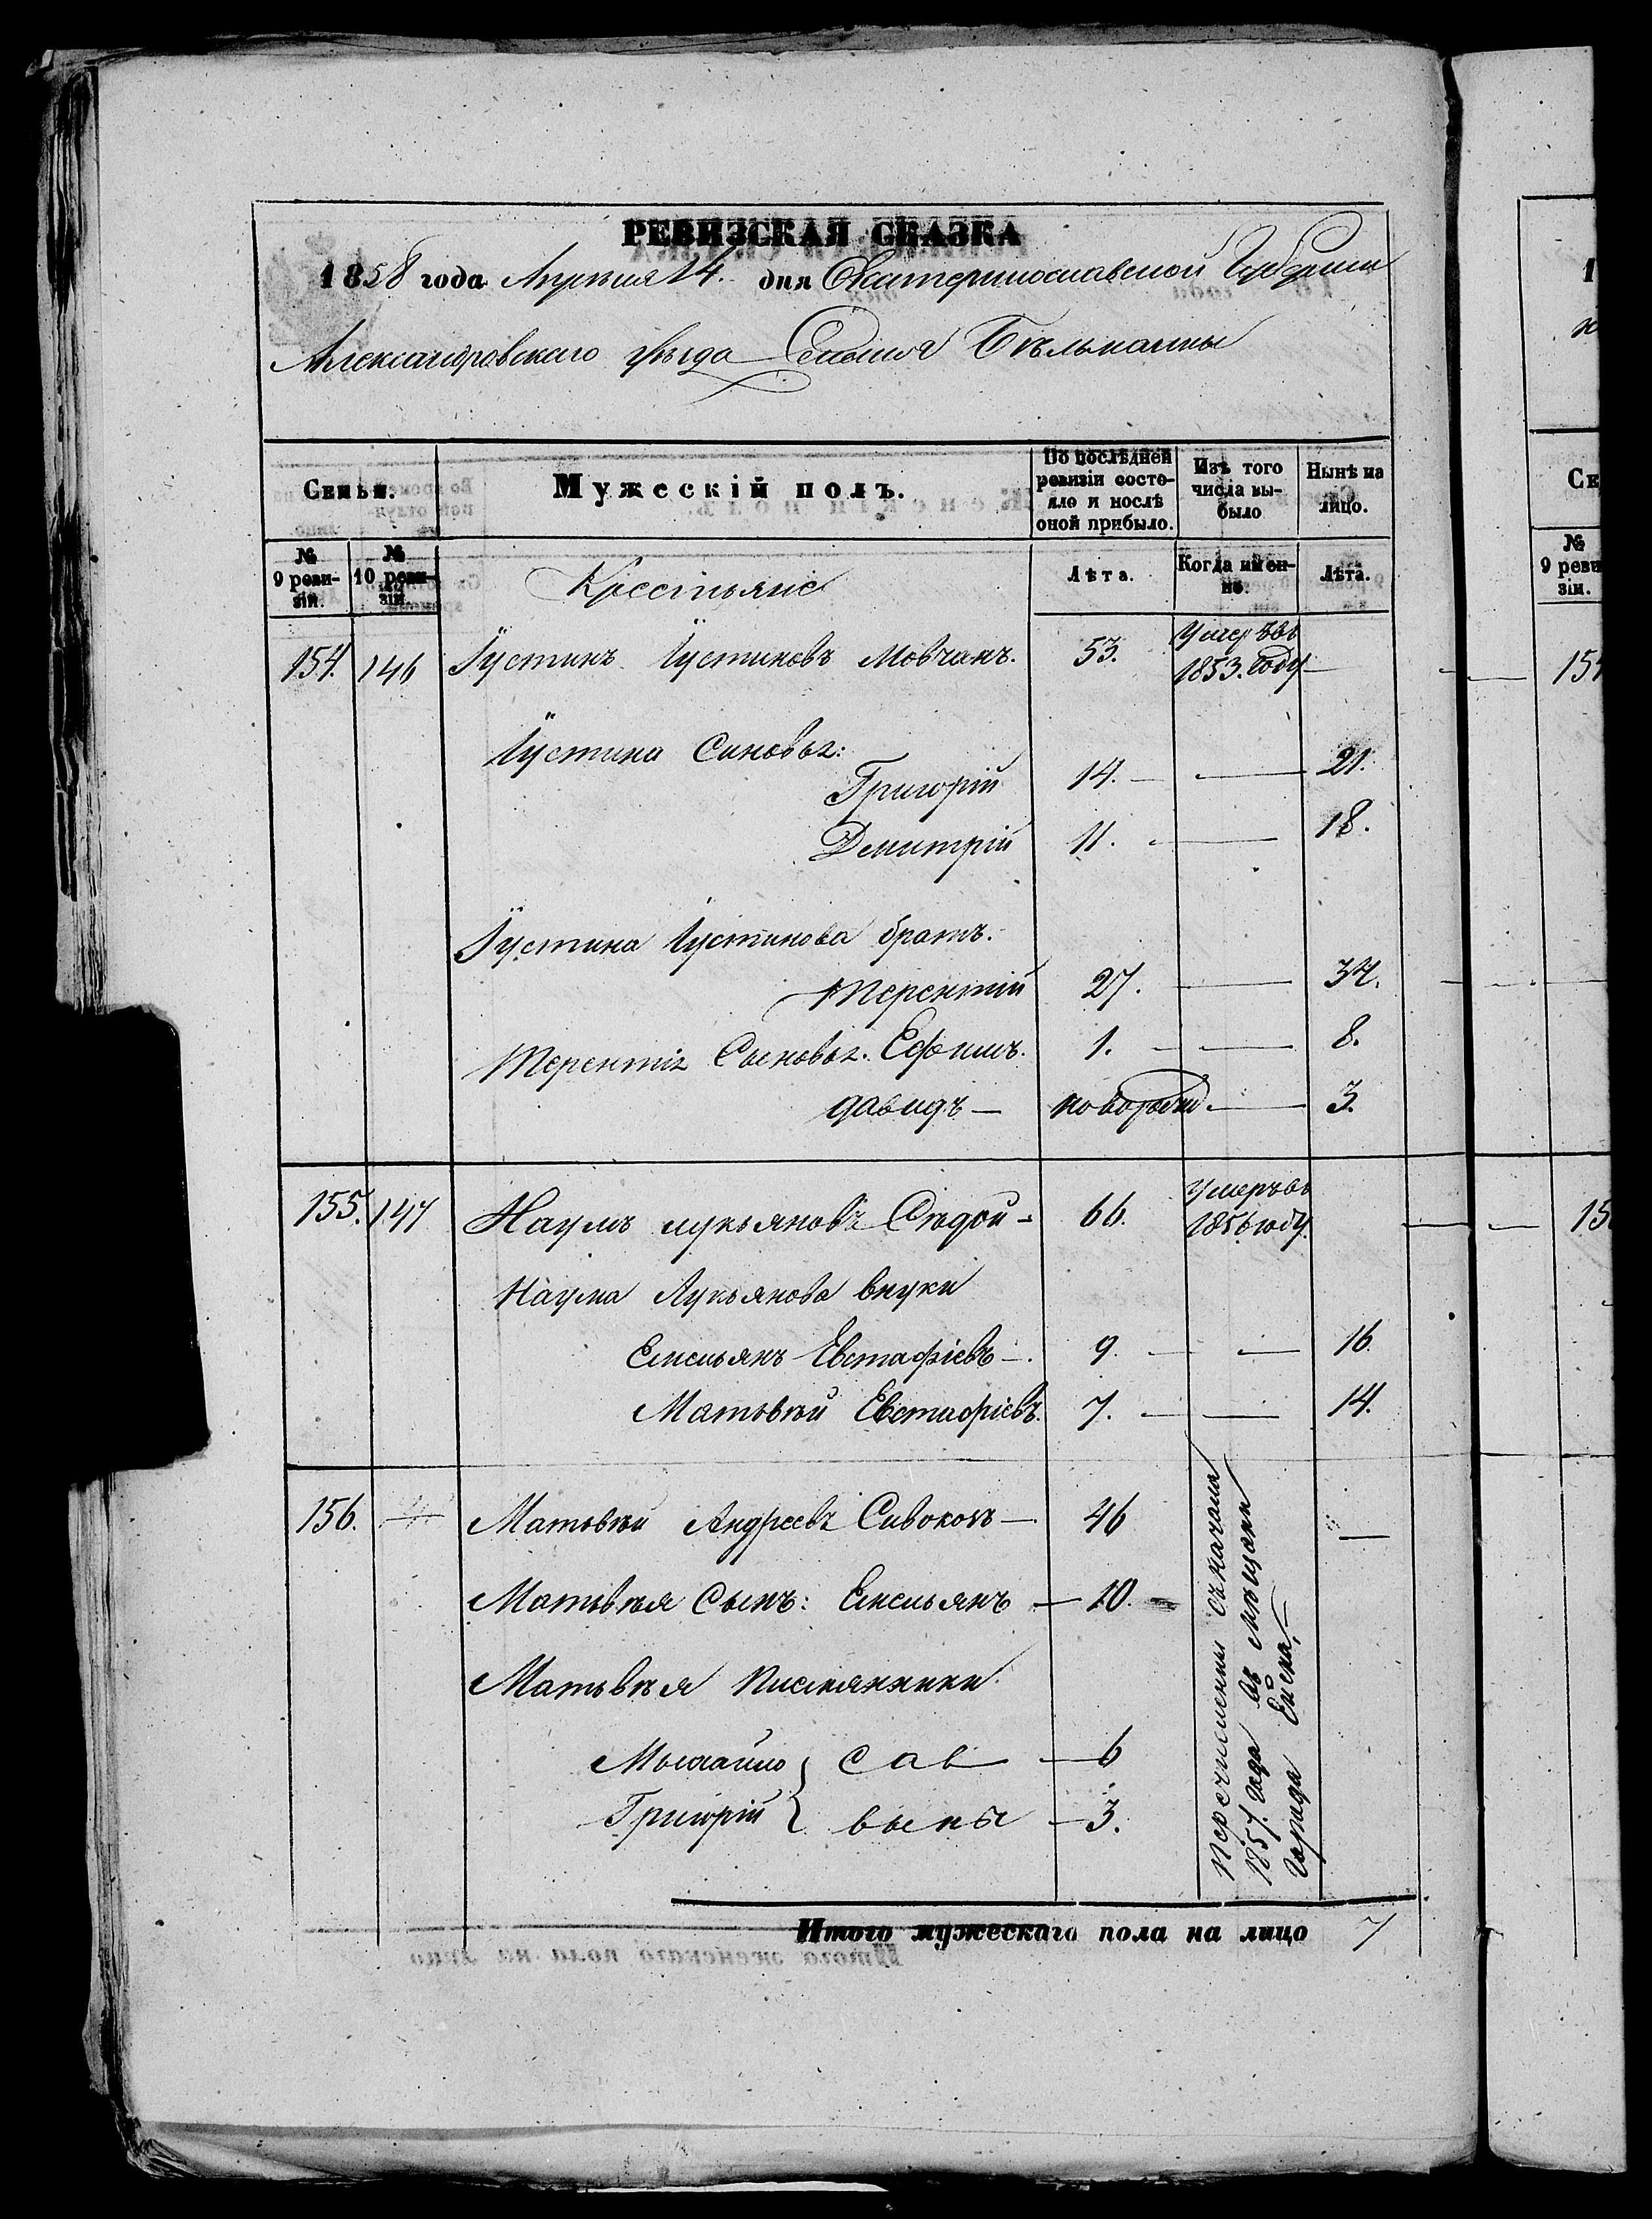 РЕВИЗСКАЯ СКАЗКА
1858 года Апреля 14. дня Екатеринославской Губернии
Александровского уѣзда Селенiя Бѣльманки
Семьи.
Мужескій полъ.
По послѣдней ревизіи состояло и послѣ оной прибыло.
Изъ того числа выбыло
Нынѣ на лицо.
№ 9 ревизіи.
№ 10 ревизіи.
Крестьяне
Лѣта.
Когда именно.
Лѣта.
154. 146 Іустинъ Іустиновъ Мовчанъ. 53. Умеръ въ 1853. году —
Іустина Синовья:
Григорій 14. — — 21.
Дмитрій 11. — 18.
Іустина Іустинова братъ.
Терентій 27. — 34.
Терентія Сыновья. Ефимъ. 1. — — 8.
Давидъ — новорожд — 3.
155. 147 Наумъ Лукьяновъ Сѣдой — 66. Умеръ въ 1856 году.
Наума Лукьянова внуки
Емельянъ Евстафіевъ —. 9. — — 16.
Матвѣй Евстафіевъ. 7. — — 14.
156. — Матвѣй Андреевъ Сивоконь —. 46 —
Матвѣя Сынъ: Емельянъ — 10. —
Матвѣя племянники
Михайло } Сав — 6
Григорій } вины — 3.
Перечислены съ начала
1857. года въ мѣщане
города Ейска, —
Итого мужескаго пола на лицо 7